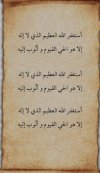 أستغفر الله العظيم الذي لا إله
إلا هو الحي القيوم و أتوب إليه
أستغفر الله العظيم الذي لا إله
إلا هو الحي القيوم و أتوب إليه
أستغفر الله العظيم الذي لا إله
إلا هو الحي القيوم و أتوب إليه